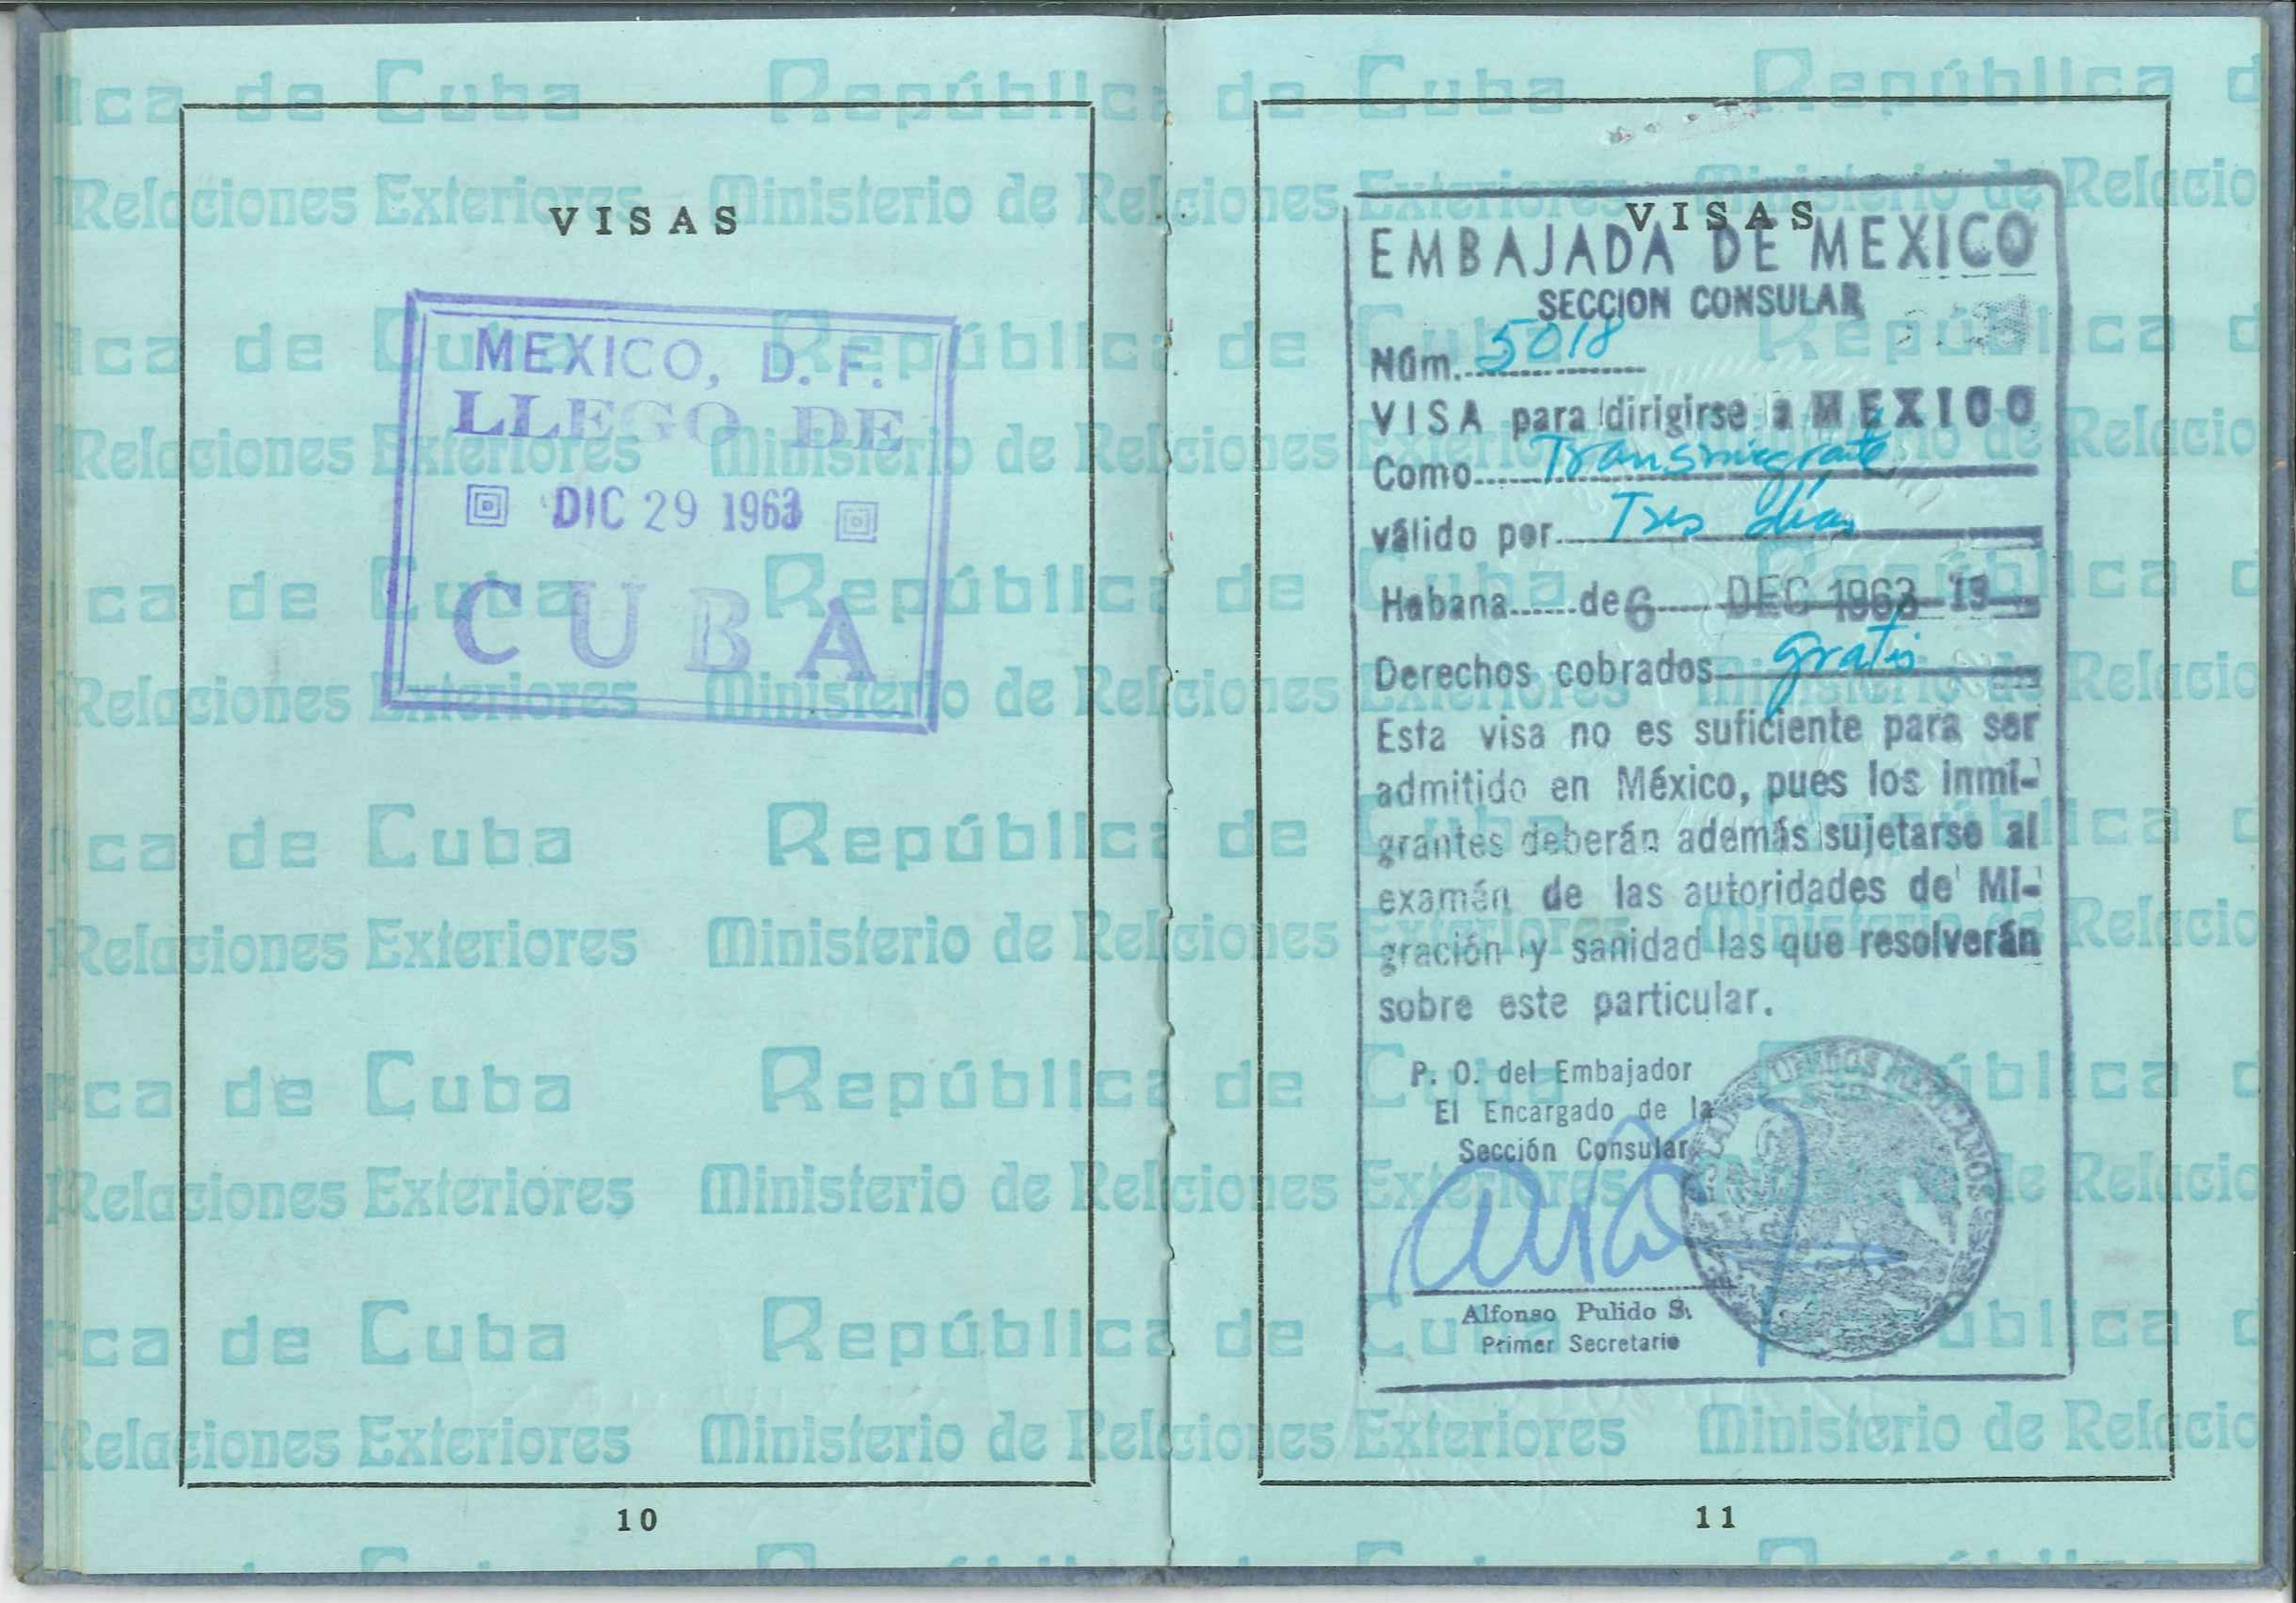 VISAS
MEXICO, D. F.
LLEGO DE
DIC 29 1963
CUBA
10
VISAS
EMBAJADA DE MEXICO
SECCION CONSULAR
Núm. 5018
VISA para dirigirse a MEXICO
Como Transmigrante
válido por Tres días
Habana de 6 DEC 1963 19
Derechos cobrados gratis
Esta visa no es suficiente para ser
admitido en México, pues los inmi-
grantes deberán además sujetarse al
examén de las autoridades de Mi-
gración y sanidad las que resolverán
sobre este particular.
P. O. del Embajador
El Encargado de la
Sección Consular
UNIDOS MEXICANOS
Alfonso Pulido S.
Primer Secretario
11
República de Cuba
Ministerio de Relaciones Exteriores